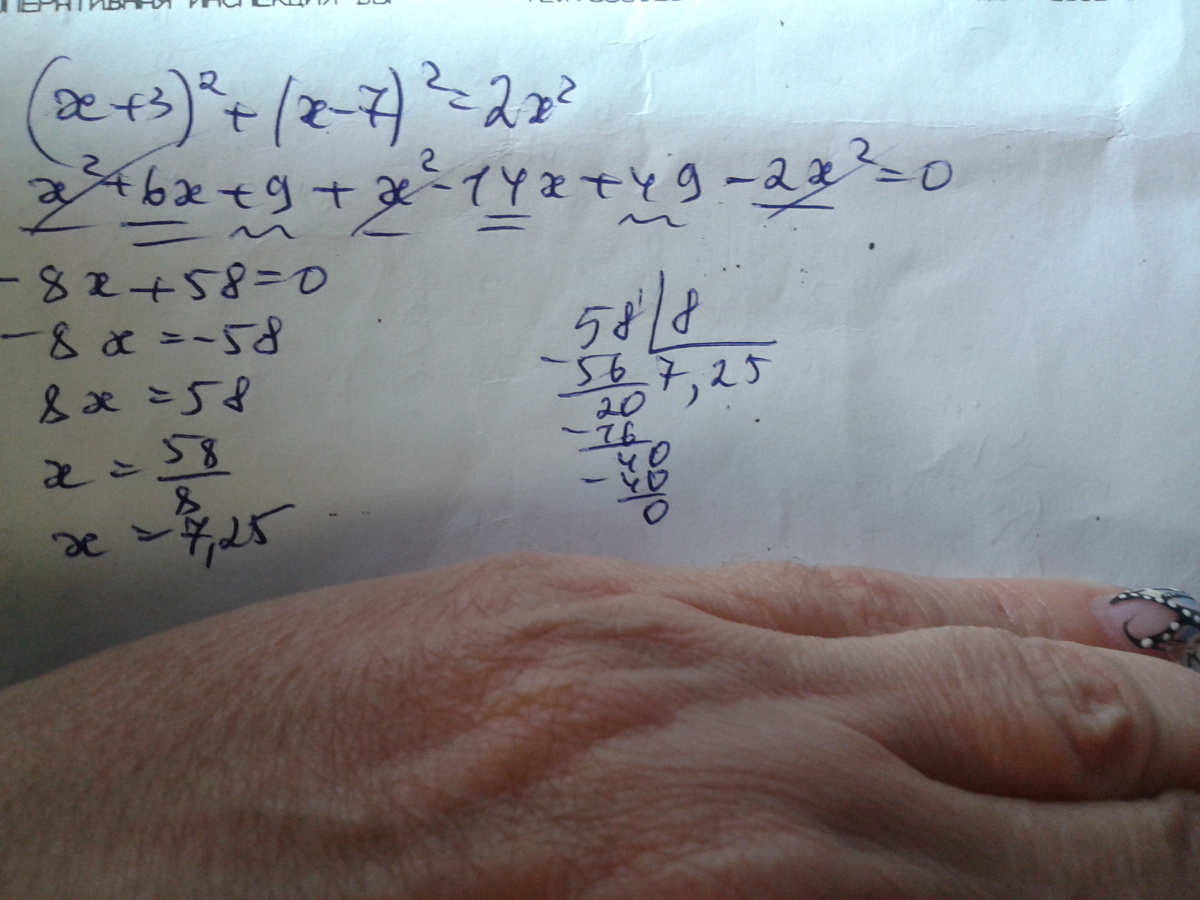 ОПЕРАТИВНАЯ ИНСПЕКЦИЯ
(x+3)² + (x-7)² = 2x²
x² + 6x + 9 + x² - 14x + 49 - 2x² = 0
-8x + 58 = 0
-8x = -58
8x = 58
x = 58/8
x = 7,25
58 | 8
-56 7,25
20
-16
40
-40
0